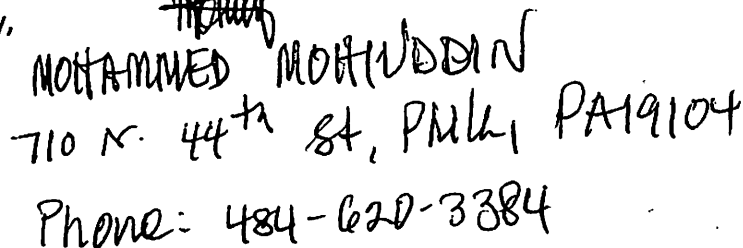 MOHAMMED MOHIUDDIN
710 N. 44th St, Phila, PA 19104
Phone: 484-620-3384